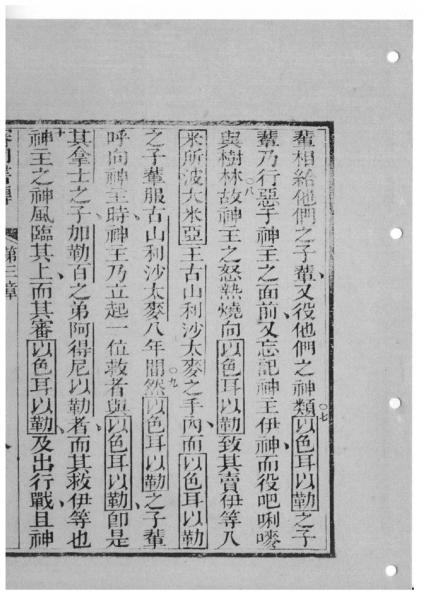 輩相給他們之子輩又役他們之神類○七以色耳以勒之子
輩乃行惡于神王之面前又忘記神王伊神而役吧唎嘜
與樹林○八故神王之怒熱燒向以色耳以勒致其賣伊等入
米所波大米亞王古山利沙太麥之手內而以色耳以勒
之子輩服古山利沙太麥八年間○九然以色耳以勒之子輩
呼向神主時神王乃立起一位救者與以色耳以勒卽是
其拿士之子加勒百之弟阿得尼以勒者而其救伊等也
十神王之神風臨其上而其審以色耳以勒及出行戰且神
第三章